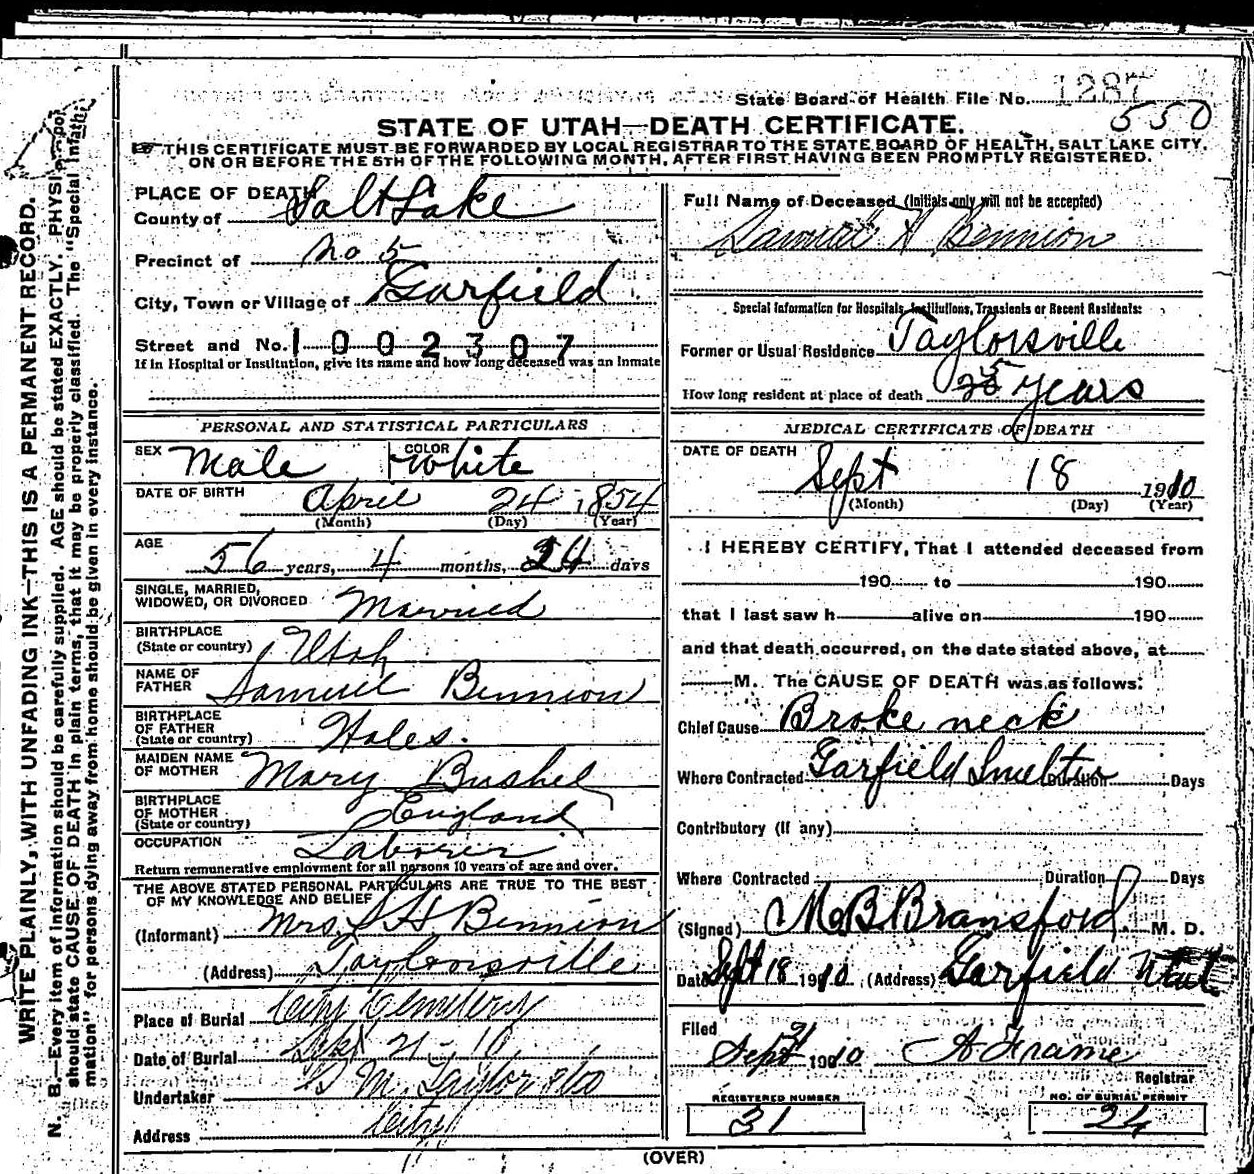 State Board of Health File No. 1287
550
STATE OF UTAH—DEATH CERTIFICATE.
THIS CERTIFICATE MUST BE FORWARDED BY LOCAL REGISTRAR TO THE STATE BOARD OF HEALTH, SALT LAKE CITY,
ON OR BEFORE THE 5TH OF THE FOLLOWING MONTH, AFTER FIRST HAVING BEEN PROMPTLY REGISTERED.
PLACE OF DEATH
County of Salt Lake
Precinct of No 5
City, Town or Village of Garfield
Street and No. 1002307
If in Hospital or Institution, give its name and how long deceased was an inmate
PERSONAL AND STATISTICAL PARTICULARS
SEX Male COLOR White
DATE OF BIRTH April 24 1854
(Month) (Day) (Year)
AGE 56 years, 4 months, 24 days
SINGLE, MARRIED,
WIDOWED, OR DIVORCED Married
BIRTHPLACE
(State or country) Utah
NAME OF
FATHER Samuel Bennion
BIRTHPLACE
OF FATHER
(State or country) Wales.
MAIDEN NAME
OF MOTHER Mary Bushel
BIRTHPLACE
OF MOTHER
(State or country) England
OCCUPATION Laborer
Return remunerative employment for all persons 10 years of age and over.
THE ABOVE STATED PERSONAL PARTICULARS ARE TRUE TO THE BEST
OF MY KNOWLEDGE AND BELIEF
(Informant) Mrs. S. H. Bennion
(Address) Taylorsville
Place of Burial City Cemetery
Date of Burial Sept 21 - 10
Undertaker S M Taylor & Co
Address City
Full Name of Deceased (Initials only will not be accepted)
Samuel H Bennion
Special Information for Hospitals, Institutions, Transients or Recent Residents:
Former or Usual Residence Taylorsville
How long resident at place of death 5 years
MEDICAL CERTIFICATE OF DEATH
DATE OF DEATH
Sept 18 1910
(Month) (Day) (Year)
I HEREBY CERTIFY, That I attended deceased from
190 to 190
that I last saw h alive on 190
and that death occurred, on the date stated above, at
M. The CAUSE OF DEATH was as follows:
Chief Cause Broke neck
Where Contracted Garfield Smelter Duration Days
Contributory (if any)
Where Contracted Duration Days
(Signed) M. B. Bransford M. D.
Date Sept 18 1910 (Address) Garfield Utah
Filed
Sept 21 1910 A Frame
Registrar
REGISTERED NUMBER
31
NO. OF BURIAL PERMIT
24
(OVER)
WRITE PLAINLY, WITH UNFADING INK—THIS IS A PERMANENT RECORD.
N. B.—Every item of information should be carefully supplied. AGE should be stated EXACTLY. PHYSI
should state CAUSE OF DEATH in plain terms, that it may be properly classified. The "Special Infor
mation" for persons dying away from home should be given in every instance.